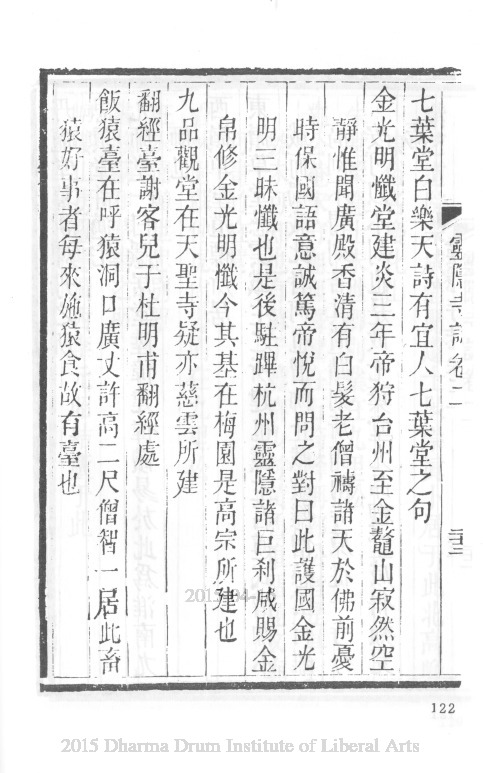 七葉堂白樂天詩有宜人七葉堂之句
金光明懺堂建炎三年帝狩台州至金鼇山寂然空
靜惟聞廣殿香清有白髮老僧禱諸天於佛前憂
時保國語意誠篤帝悅而問之對曰此護國金光
明三昧懺也是後駐蹕杭州靈隱諸巨刹咸賜金
帛修金光明懺今其基在梅園是高宗所建也
九品觀堂在天聖寺疑亦慈雲所建
翻經臺謝客兒于杜明甫翻經處
飯猿臺在呼猿洞口廣丈許高二尺僧智一居此畜
猿好事者每來施猿食故有臺也
靈隱寺誌卷二
122
2015 Dharma Drum Institute of Liberal Arts